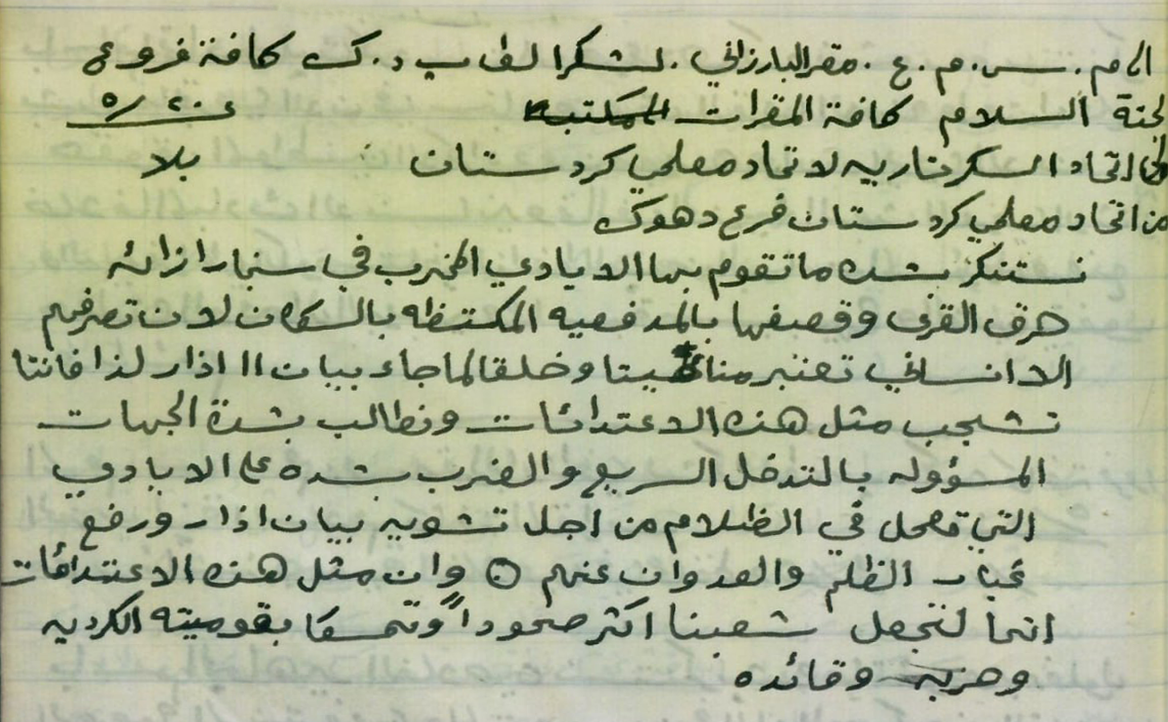 الى م. س. م. ع. مقر البارزاني. لشكرا لف ب د. ك كافة فروعى
لجنة السلام كافة المقرات المكتبه ٥/٢٠٤
اتحاد السكرتاريه لاتحاد معلمي كردستان بلا
من اتحاد معلمي كردستان فرع دهوك
نستنكر بشده ما تقوم بها الايادي المخرب في سنجار ازائه
حرق القرى وقصفها بالمدفعيه المكتظه بالسكان لان تصرفهم
الا انساني تعتبر منافيتا وخلقا لما جاء ببيان ١١ اذار لذا فاننا
نشجب مثل هذه الاعتدائات ونطالب بشدة الجهات
المسؤوله بالتدخل السريع والضرب بشده على الايادي
التي تعمل في الظلام من اجل تشويه بيان اذار ورفع
غبار الظلم والعدوان عنهم ٥ وان مثل هذه الاعتدائات
انما لتجعل شعبنا اكثر صموداً وتمسكا بقوميته الكرديه
وحزبه وقائده